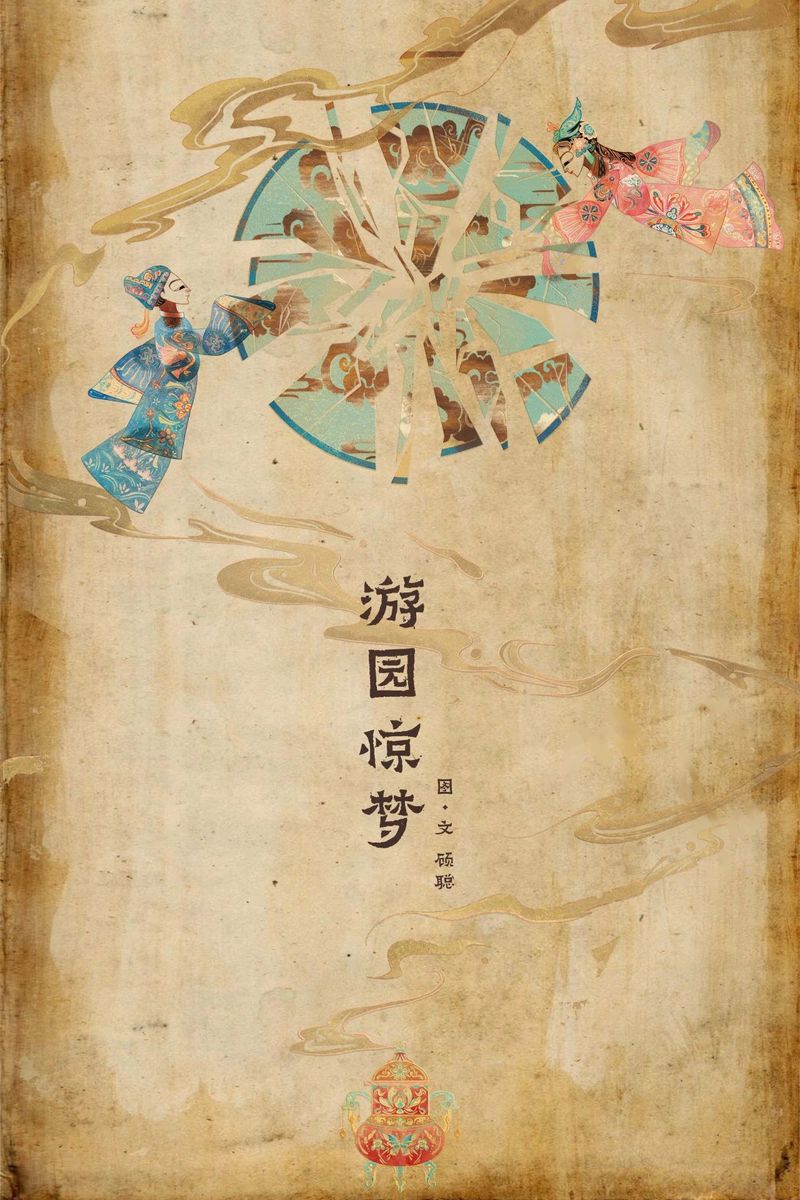 游园惊梦
图·文 顾聪